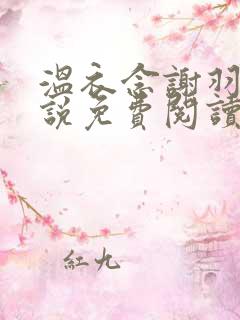 溫衣念謝羽
說免費閱讀
紅九